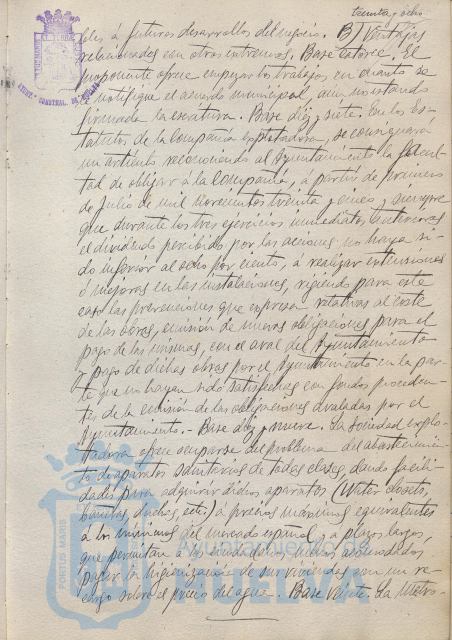 treinta y ocho
bles a futuros desarrollos del negocio. B) Ventajas
relacionadas con otros extremos. Base catorce. El
proponente ofrece empezar los trabajos en cuanto se
le notifique el acuerdo municipal, aun no estando
firmada la escritura. Base diez y siete. En los Es-
tatutos de la Compañía explotadora, se consignará
un artículo reconociendo al Ayuntamiento la facul-
tad de obligar á la Compañía, á partir de primero
de Julio de mil novecientos treinta y cinco, siempre
que durante los tres ejercicios inmediatos anteriores
el dividendo percibido por las acciones no haya si-
do inferior al ocho por ciento, á realizar extensiones
ó mejoras en las instalaciones, rigiendo para este
caso las prevenciones que expresa relativas al coste
de las obras, emisión de nuevas obligaciones para el
pago de las mismas, con el aval del Ayuntamiento
y pago de dichas obras por el Ayuntamiento en la par-
te que no hayan sido satisfechas con fondos proceden-
tes de la emisión de las obligaciones avaladas por el
Ayuntamiento.- Base diez y nueve. La Sociedad explo-
tadora ofrece ocuparse del problema del abastecimien-
to de aparatos sanitarios de todas clases, dando facili-
dades para adquirir dichos aparatos (Water closets,
bañeras, duchas, etc) á precios máximos equivalentes
á los mínimos del mercado español, y a plazos largos,
que permitan á los ciudadanos menos acomodados
pagar la higienización de sus viviendas con un re-
cargo sobre el precio del agua. Base veinte. La Metro-
AYUNTAMIENTO
PORTUS MARIS
Ayuntamiento de
HUELVA